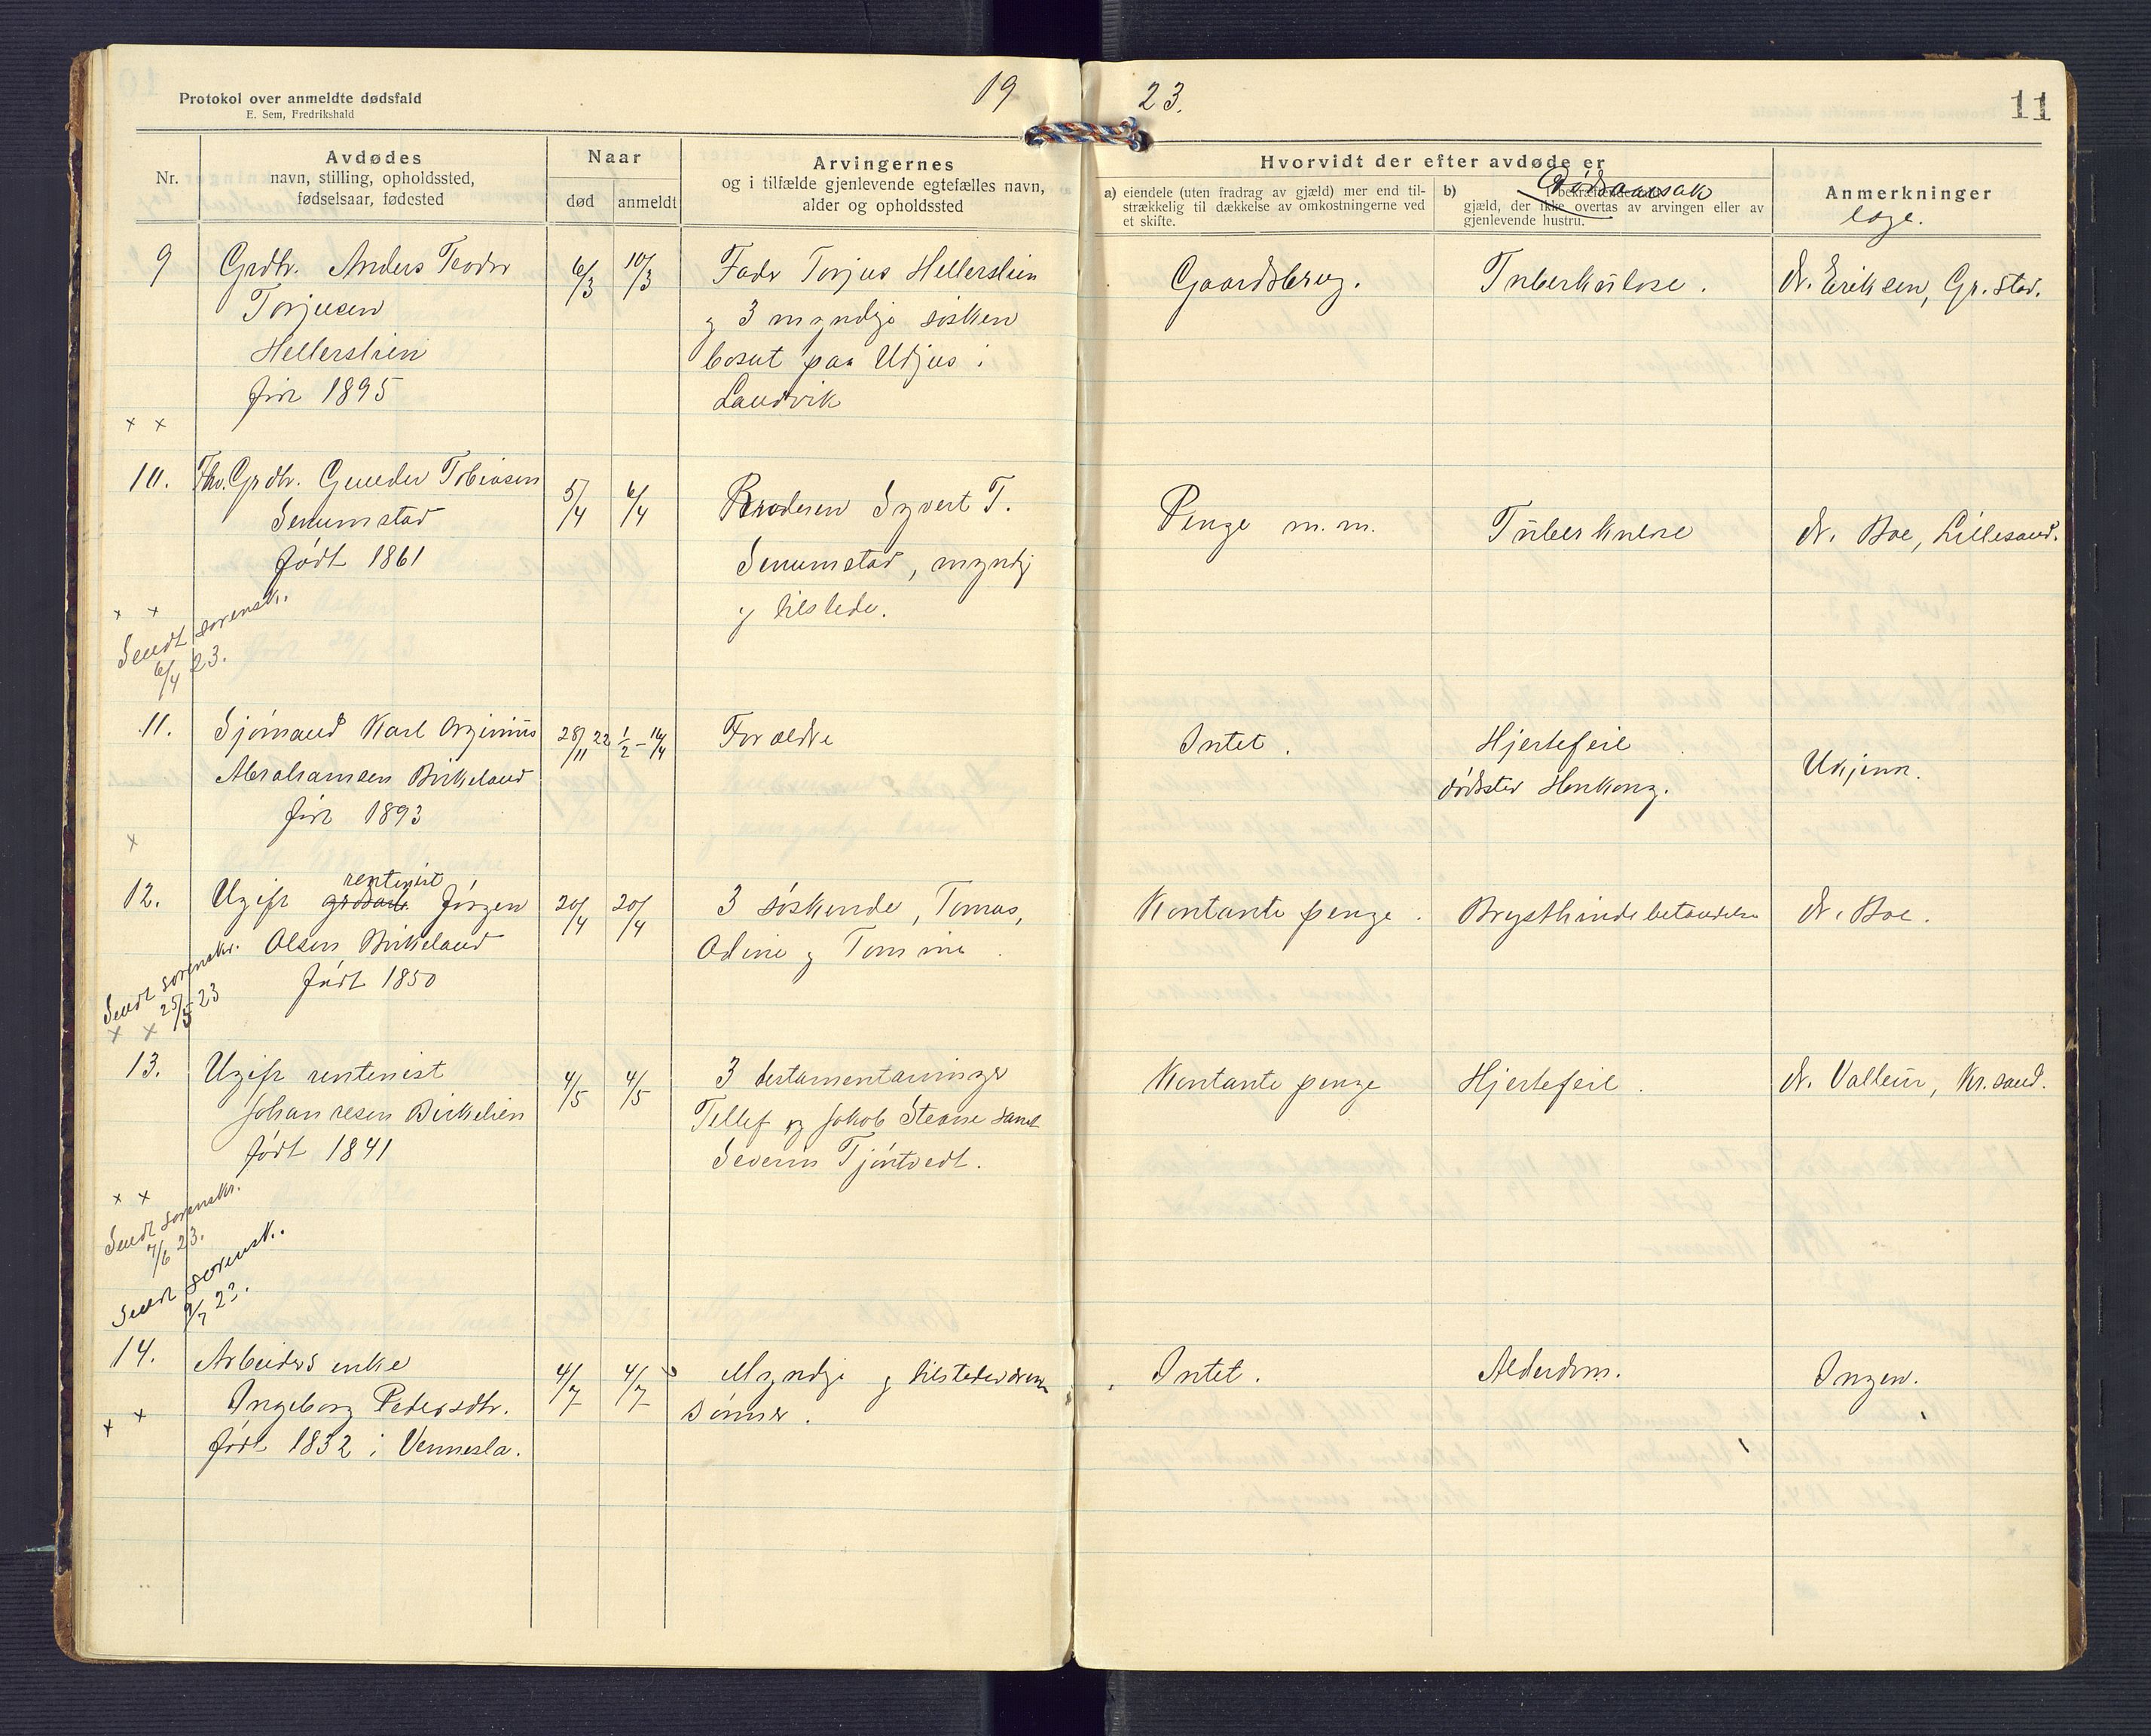 Protokol over anmeldte dødsfald
E. Sem, Fredrikshald
19 23.
11
Nr.
Avdødes
navn, stilling, opholdssted,
fødselsaar, fødested
Naar
død
anmeldt
Arvingernes
og i tilfælde gjenlevende egtefælles navn,
alder og opholdssted
Hvorvidt der efter avdøde er
a) eiendele (uten fradrag av gjæld) mer end til-
strækkelig til dækkelse av omkostningerne ved
et skifte.
b)
Dødsaarsak
gjæld, der ikke overtas av arvingen eller av
gjenlevende hustru.
Anmerkninger
læge.
9
Grdbr. Anders Teodor
Torjusen
Hellerslien
før 1895
6/3
10/3
Fader Torjus Hellerslien
og 3 myndige søsken
bosat paa Utjus i
Landvik
Gaardsbrug.
Tuberkulose.
dr. Eriksen, Gr.stad.
x x
10.
Fhv. Grdbr. Gunder Tobiasen
Senumstad
født 1861
5/4
6/4
Broderen Syvert T.
Senumstad, myndig
og tilstede.
Penge m.m.
Tuberkulose
dr. Boe, Lillesand.
x x
Sendt sorensk.
6/4 23.
11.
Sjømand Karl
Abrahamsen Birkeland
før 1893
28/11 22
1/2 - 16/4
Forældre
Intet.
Hjertefeil
dødssted Honkong.
Ukjenn.
x
12.
rentenist
Ugift Jørgen
Olsen Birkeland
født 1850
20/4
20/4
3 søskende, Tomas,
Odine og Tomine.
Kontante penge.
Brysthindebetændelse
dr. Boe.
Sendt sorenskr.
25/5 23
x x
13.
Ugift rentenist
Johannesen Birkelien
født 1841
4/5
4/5
3 testamentarvinger
Tellef og Jakob Steane samt
Severin Tjøntvedt.
Kontante penge
Hjertefeil.
dr. Valleur, Kr.sand.
x x
Sendt sorenskr.
7/6 23.
Sendt sorensk.
9/7 23.
14.
Arbeiders enke
Ingeborg Pedersdtr.
født 1832 i Vennesla.
4/7
4/7
Myndige og tilstedeværende
sønner.
Intet.
Alderdom.
Ingen.
x x